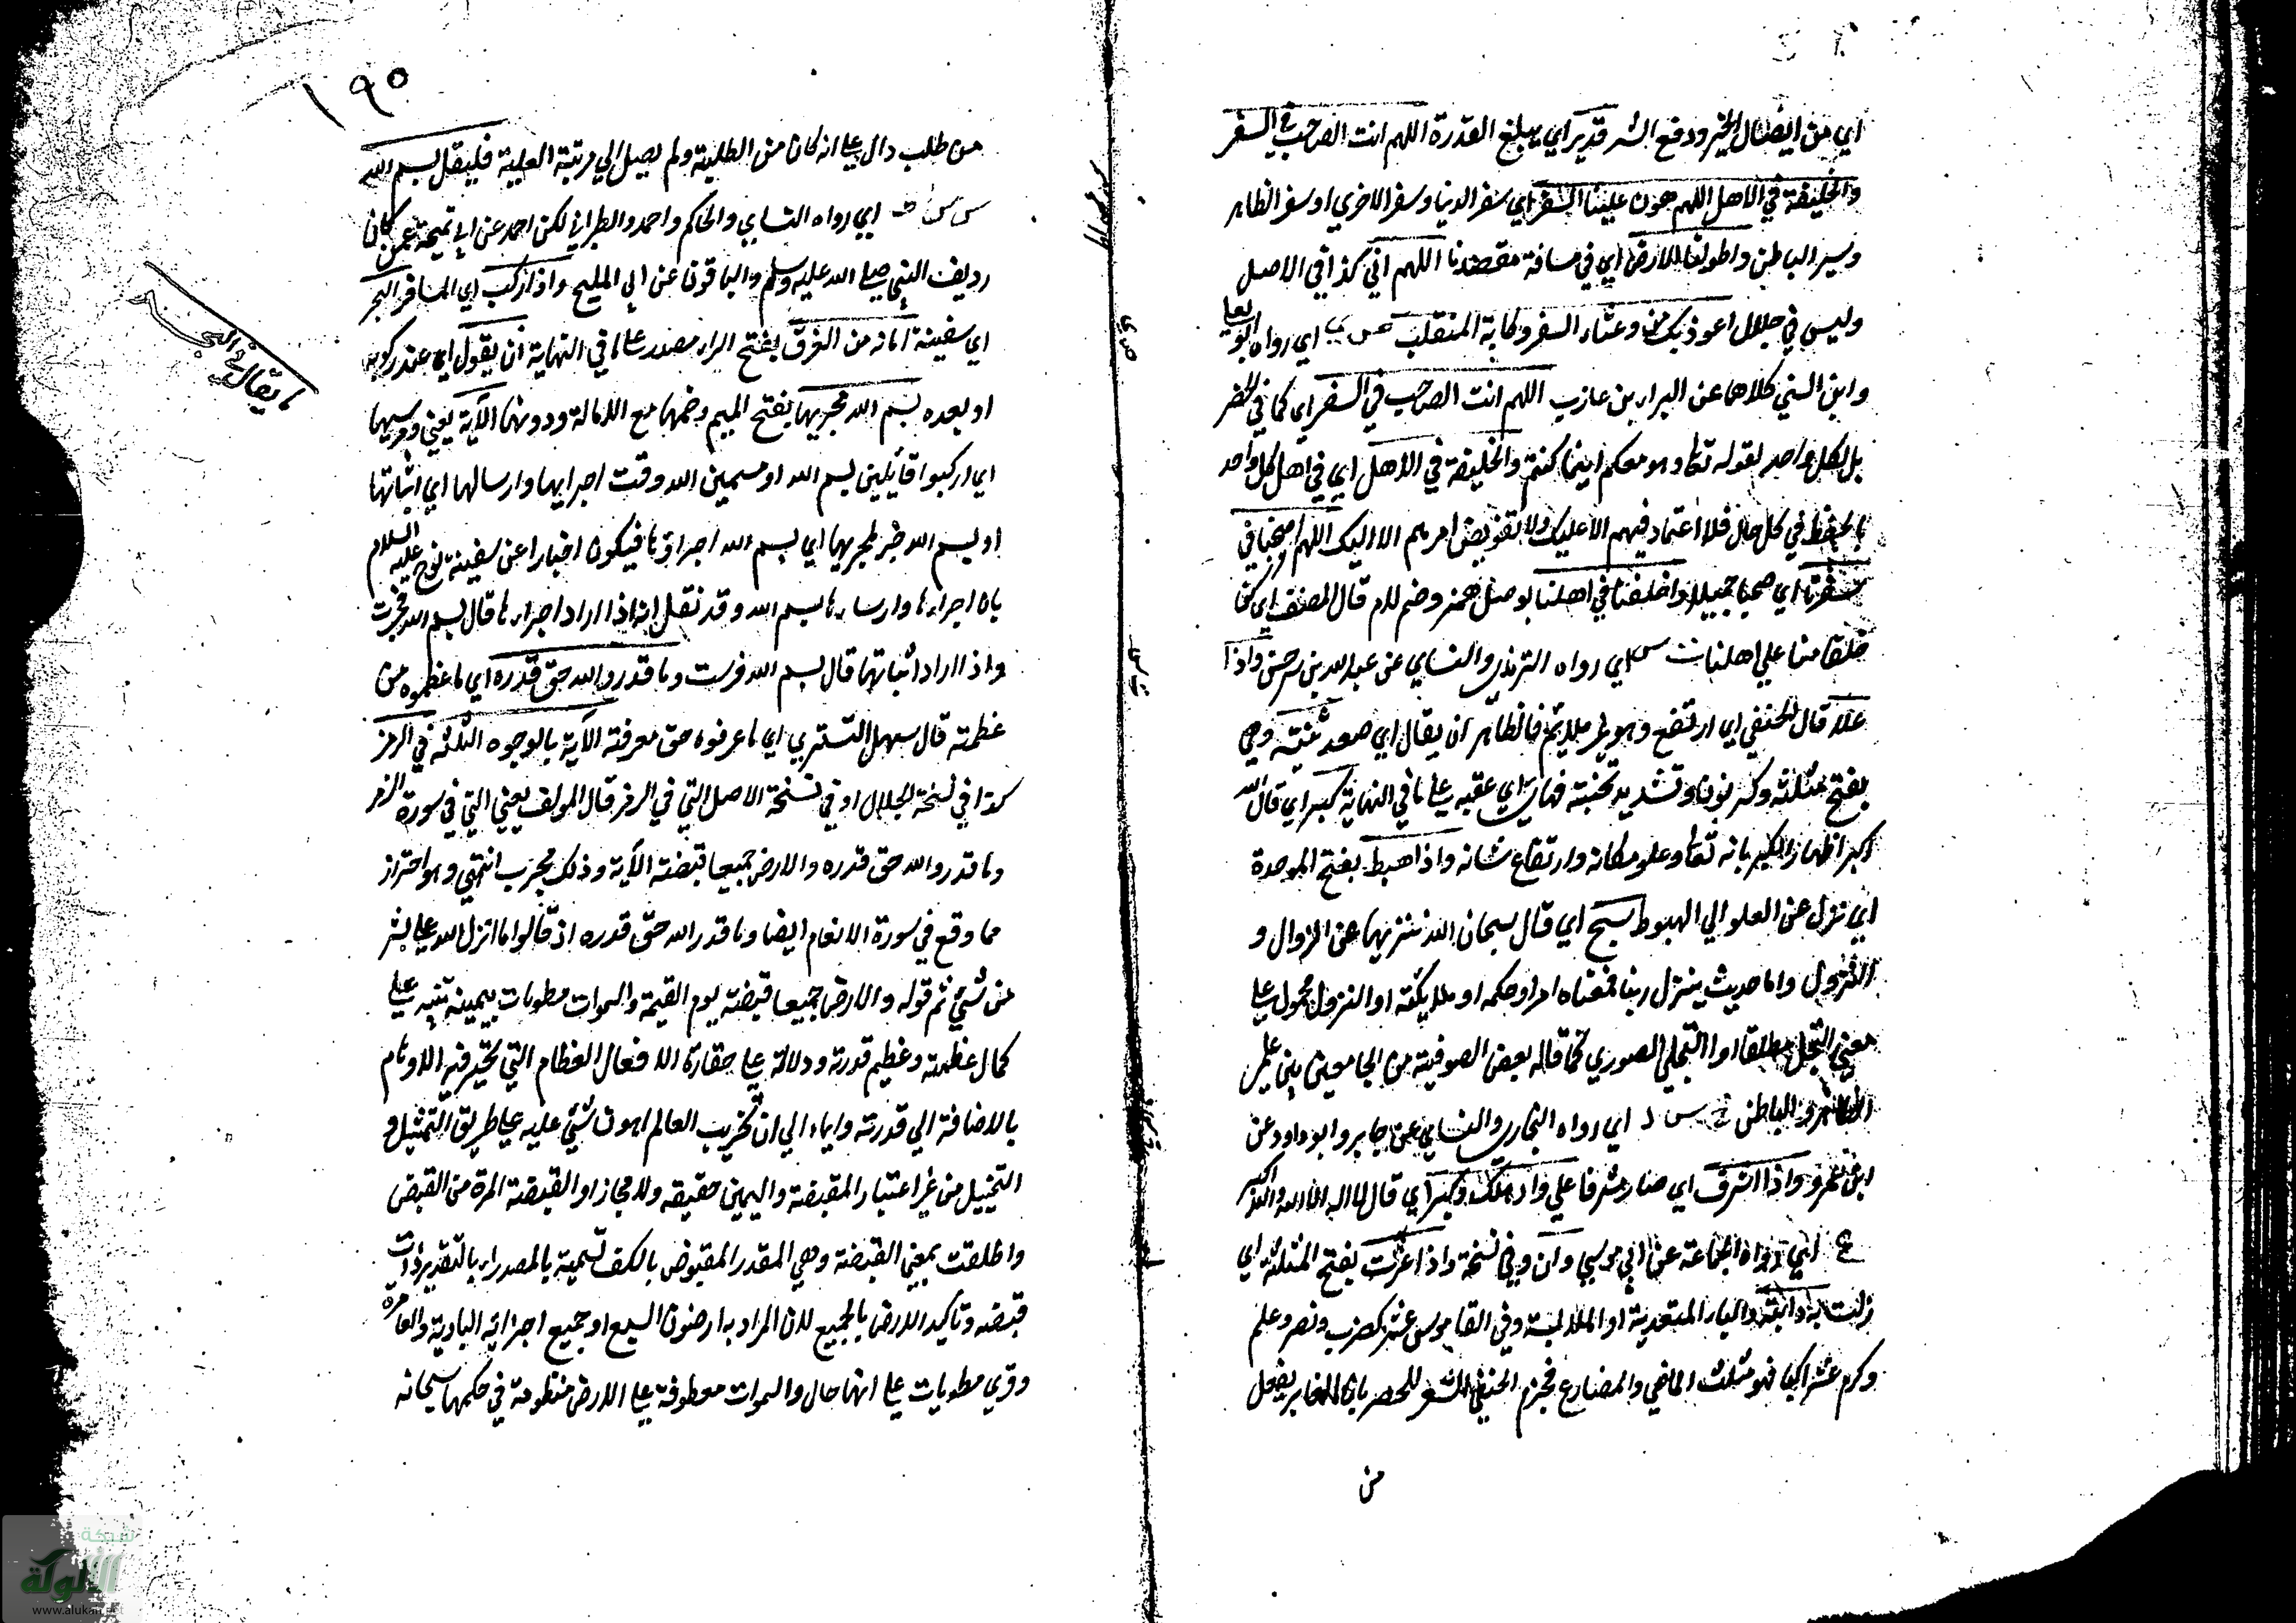 اي من ايصال الخير ودفع الشر قدير اي بليغ القدرة اللهم انت الصاحب في السفر
والخليفة في الاهل اللهم هون علينا السفر اي سفر الدنيا وسفر الاخري او سفر الظاهر
وسير الباطن واطو لنا الارض اي في مسافة مقصدنا اللهم اني كذا في الاصل
وليس في جلال اعوذ بك من وعثاء السفر وكابة المنقلب ص ي اي رواه ابو يعلي
وابن السني كلاهما عن البراء بن عازب اللهم انت الصاحب في السفر اي كما في الحضر
بل لكل واحد لقوله تعا وهو معكم اينما كنتم والخليفة في الاهل اي في اهل كل واحد
بالحفظ في كل حال فلا اعتماد فيهم الا عليك ولا تفويض امرهم الا اليك اللهم اصحبنا في
سفرنا اي صحبا جميلا واخلفنا في اهلنا بوصل همز وضم لام قال المصنف اي كن
خلفا منا علي اهلنا ت س اي رواه الترمذي والنساي عن عبد الله بن سرجس واذا
علا قال الحنفي اي ارتفع وهو غير ملايم فالظاهر ان يقال اي صعد ثنية وهي
بفتح مثلثة وكسر نون وتشديد تحتية عقبة علي ما في النهاية كبر اي قال الله
اكبر اظهارا لكبريائه تعا وعلو مكانه وارتفاع شانه واذا هبط بفتح الموحدة
اي نزل عن العلو الي الهبوط سبح اي قال سبحان الله تنزيها عن الزوال و
النزول واما حديث ينزل ربنا فمعناه امر او حكمه او ملايكته او النزول محمول علي
معني التجلي مطلقا او التجلي الصوري كما قاله بعض الصوفية من الجامعين بين علمي
الظاهر والباطن خ س د اي رواه البخاري والنساي عن جابر وابو داود عن
ابن عمر واذا اشرف اي صار مشرفا علي واد هلل وكبر اي قال لا اله الا الله والله اكبر
ع اي رواه الجماعة عن ابي موسي وان وفي نسخة واذا عثرت بفتح المثلثة اي
زلت به دابته والباء المتعدية او الملابسة وفي القاموس عثر كضرب ونصر وعلم
وكرم عثر اكبا فهو مثلث الماضي والمضارع فجزم الحنفي المشعر للحصر بان الغابر يفعل
من
١٩٥
من طلب دال علي انه كان من الطلبة ولم يصل الي مرتبة العلية فليقل بسم الله
س مس ا ط اي رواه النساي والحاكم واحمد والطبراني لكن احمد عن ابي تميمة عمن كان
رديف النبي صلي الله عليه وسلم والباقون عن ابي المليح واذا ركب اي المسافر البحر
اي سفينة امانه من الغرق بفتح الراء مصدر علي ما في النهاية ان يقول اي عند ركوبه
او بعده بسم الله مجريها بفتح الميم وضمها مع الامالة ودونها الآية يعني ومرسيها
اي اركبوا قائلين بسم الله او مسمين الله وقت اجرايها وارسالها اي اثباتها
او بسم الله خبر لمجريها اي بسم الله اجراؤها فيكون اخبارا عن سفينة نوح عليه السلام
بان اجراءها وارساءها بسم الله وقد نقل انه اذا اراد اجراءها قال بسم الله فجرت
واذا اراد اثباتها قال بسم الله فرست وما قدروا الله حق قدره اي ما عظموه من
عظمته قال سهل التستري اي ما عرفوه حق معرفته الآية بالوجوه الثلثة في الزمر
كذا في نسخة الجلال او في نسخة الاصل التي في الزمر قال المولف يعني التي في سورة الزمر
وما قدروا الله حق قدره والارض جميعا قبضته الآية وذلك مجرب انتهي وهو احتراز
مما وقع في سورة الانعام ايضا وما قدروا الله حق قدره اذ قالوا ما انزل الله علي بشر
من شئ ثم قوله والارض جميعا قبضته يوم القيمة والسموات مطويات بيمينه تنبيه علي
كمال عظمته وعظيم قدرته ودلالة علي حقارة الافعال العظام التي تتحير فيه الاوهام
بالاضافة الي قدرته وايماء الي ان تخريب العالم اهون شئ عليه علي طريق التمثيل و
التخييل من غير اعتبار القبضة واليمين حقيقة ولا مجازا والقبضة المرة من القبض
واطلقت بمعني القبضة وهي المقدر المقبوض بالكف تسمية بالمصدر او بالتقدير ذات
قبضه وتاكيد الارض بالجميع لان المراد به ارضون السبع او جميع اجزائه البادية والغامرة
وقري مطويات علي انها حال والسموات معطوفة علي الارض منظومة في حكمها سبحانه
ما يقال في البحر